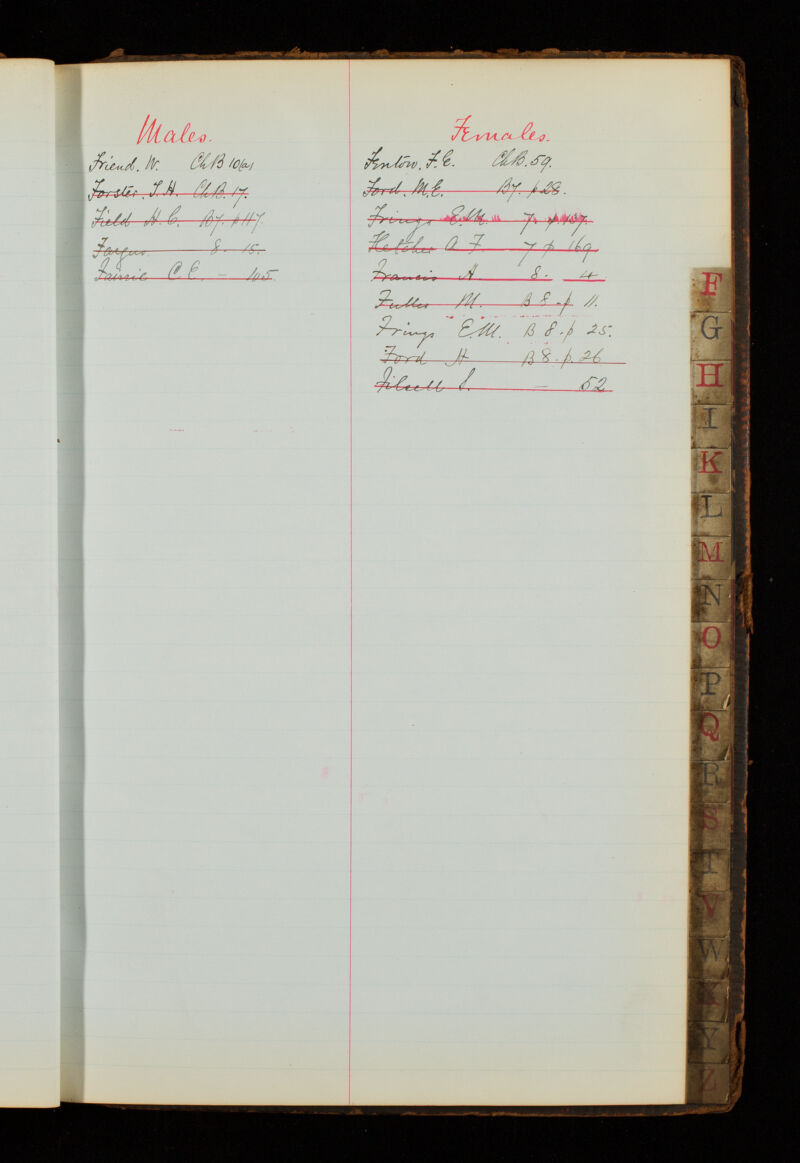 Males.
Friend. W. Ch B 10(a)
Forster. J. H. Ch B. 17.
Field H. C. B7. p 117.
Fargus 8. 15.
C E. - 105
Females.
Fenton. F. E. Ch. B. 59.
Ford. M. E. B7. p 28.
Frings E.M. 7. p 157.
Fletcher A F 7 p 169
Francis A. 8. 4
Fuller M. B 8 - p 11.
Frings E.M. B 8. p 25.
Ford H B 8. p. 26
Filsell S. - 52
F
G
H
I
K
L
M
N
O
P
Q
R
S
T
V
W
Y
Z